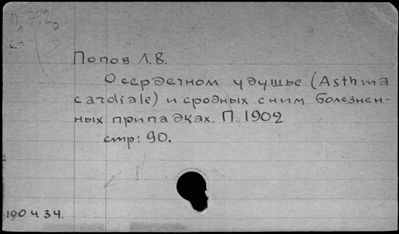 Попов Л.В.
О сердечном удушье (Asthma
cardiale) и сродных с ним болезнен-
ных припадках. П. 1902
стр: 90.
190434.